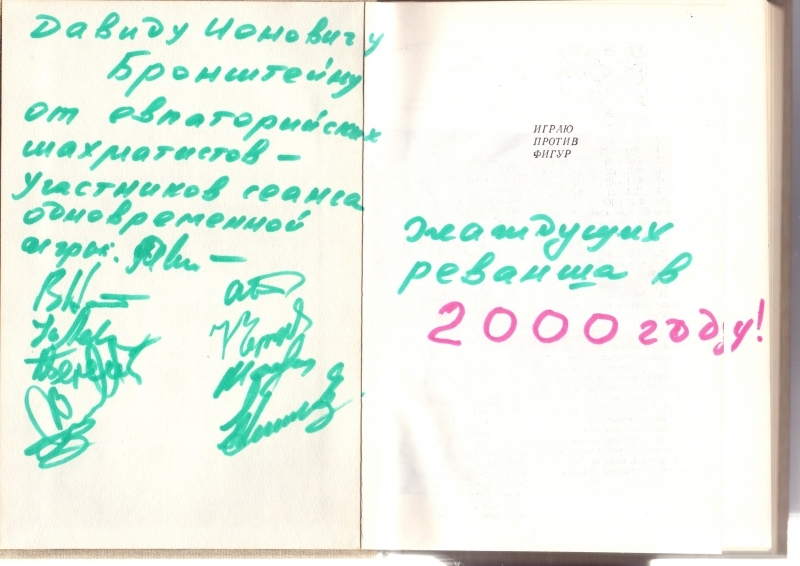 Давиду Ионовичу
Бронштейну
от евпаторийских
шахматистов –
участников сеанса
одновременной
игры:
ИГРАЮ
ПРОТИВ
ФИГУР
жаждущих
реванша в
2000 году!